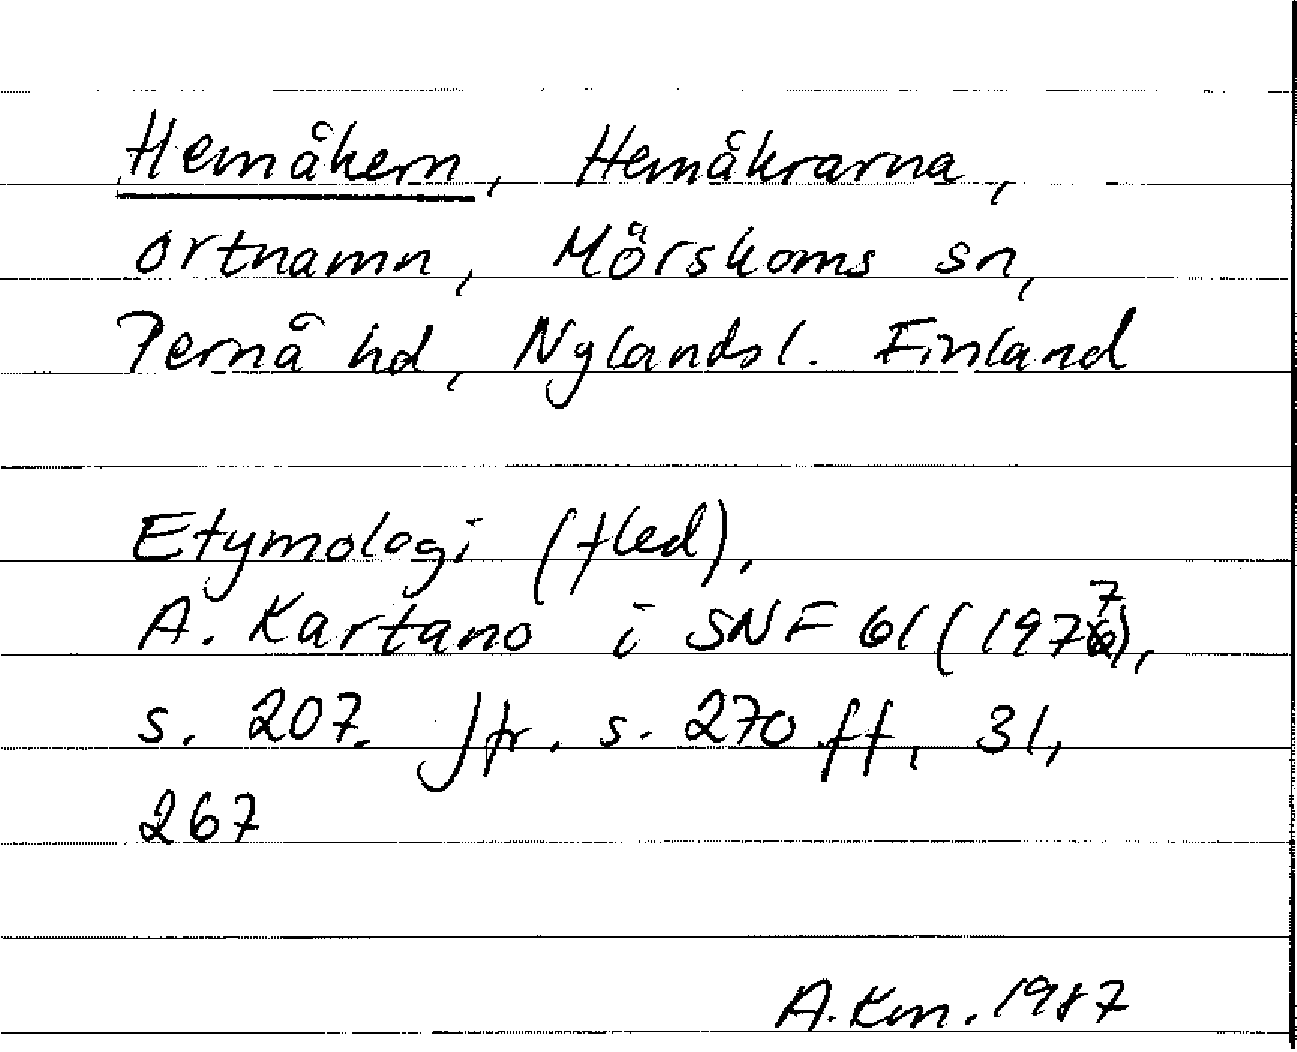 Hemåkern, Hemåkrarna,
ortnamn, Mörskoms sn,
Pernå hd, Nylandsl. Finland
Etymologi (fled),
A. Kartano i SNF 61 (1977),
s. 207. Jfr. s. 270 ff, 31,
267
A. Km. 1987